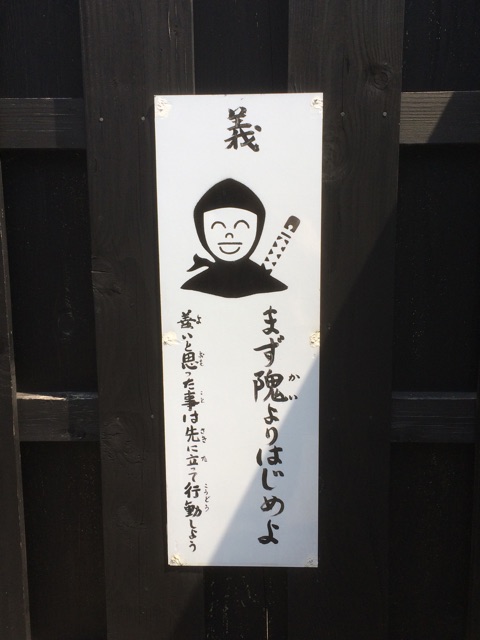 義
まず隗よりはじめよ
かい
善いと思った事は先に立って行動しよう
よ おも こと さき た こうどう